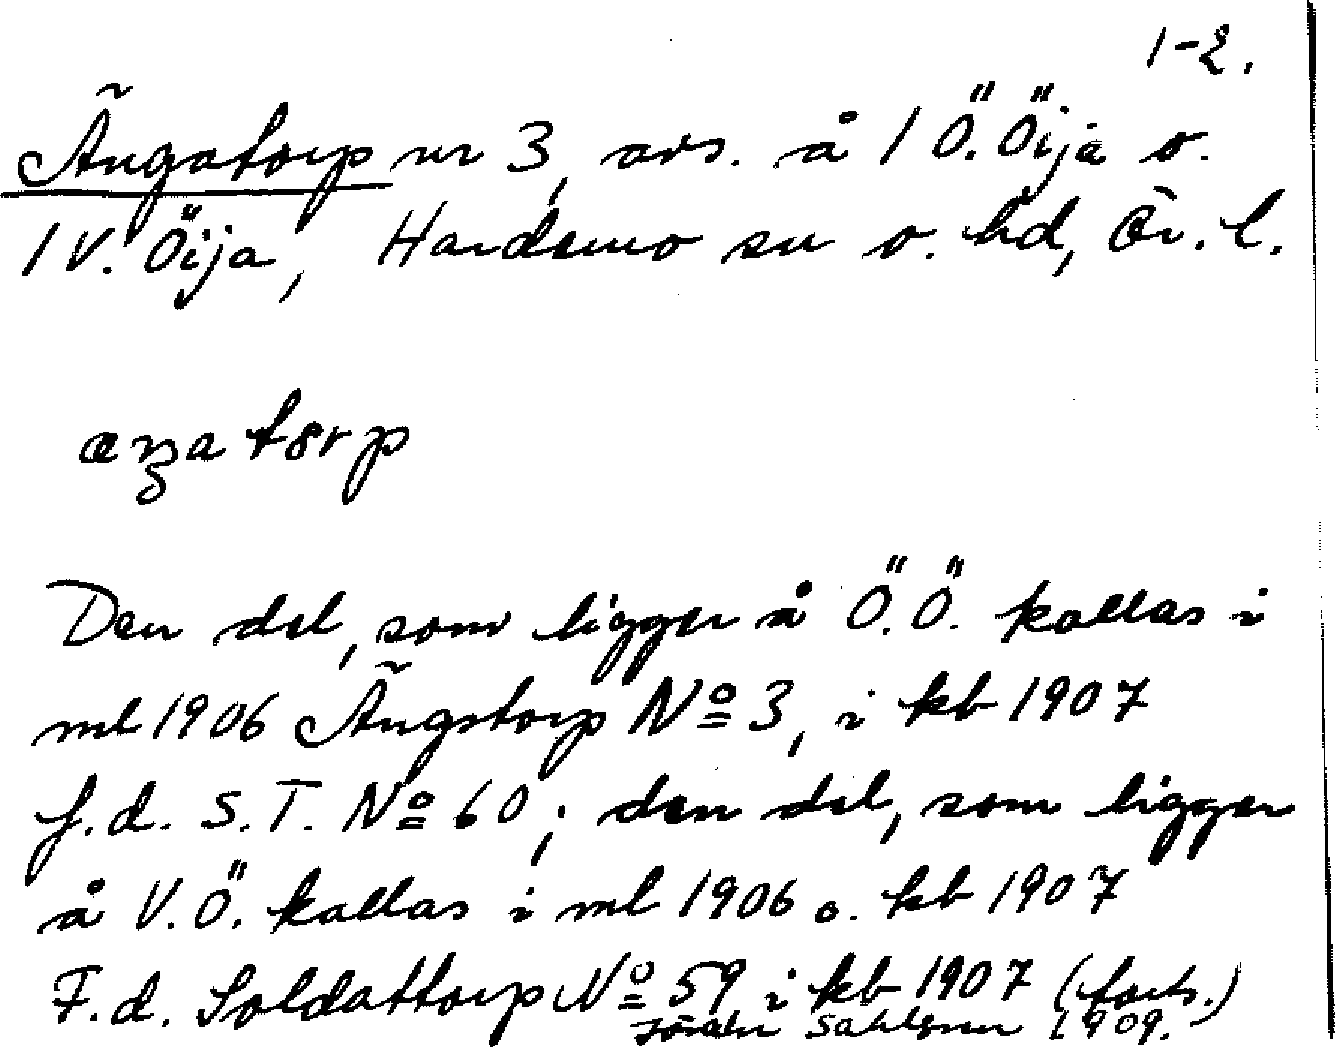 1-2.
Ängatorp nr 3, avs. å 1 Ö. Öija o.
1 V. Öija, Hardemo sn o. hd, Ör. l.
Den del, som ligger å Ö.Ö. kallas i
ml 1906 Ängstorp No 3, i kb 1907
f.d. S.T. No 60; den del, som ligger
å V.Ö. kallas i ml 1906 o. kb 1907
F.d. Soldattorp No 59 i kb 1907 (forts.)
Sahlgren 1909.